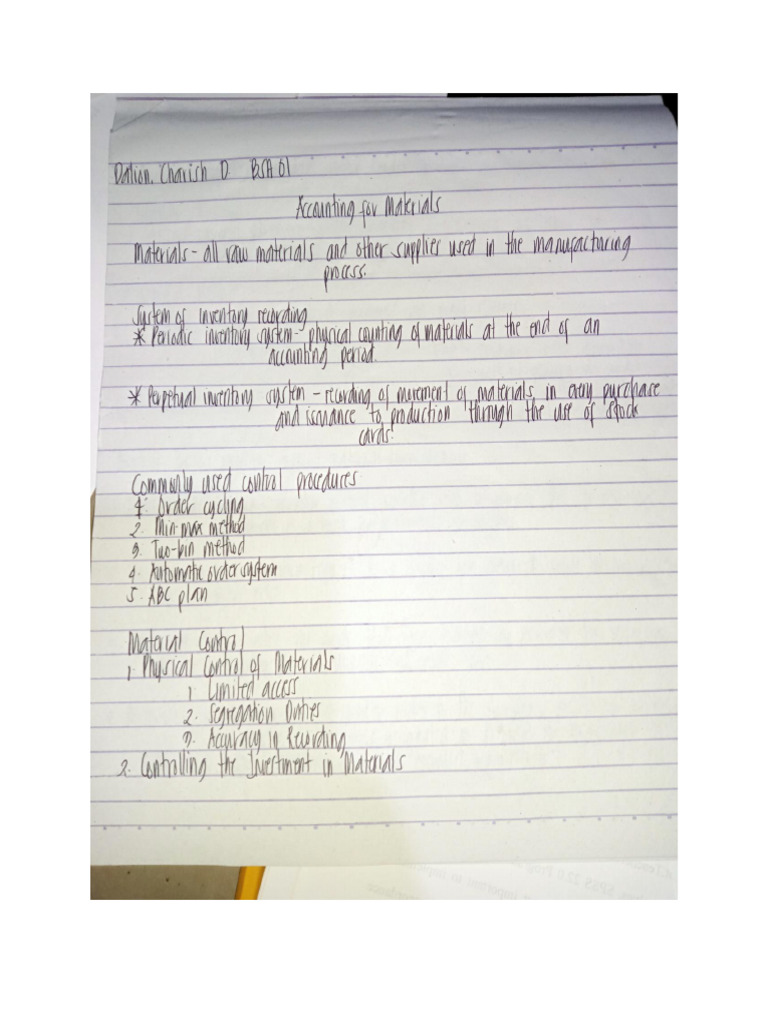 Dalion, Charish D. BSA 01
Accounting for Materials
Materials - all raw materials and other supplies used in the manufacturing
process.
System of inventory recording
* Periodic inventory system - physical counting of materials at the end of an
accounting period.
* Perpetual inventory system - recording of movement of materials in every purchase
and issuance to production through the use of stock
cards.
Commonly used control procedures
1. Order cycling
2. Min-max method
3. Two-bin method
4. Automatic order system
5. ABC plan
Material Control
1. Physical Control of Materials
1. Limited access
2. Segregation Duties
3. Accuracy in Recording
2. Controlling the Investment in Materials
SPSS 22.0